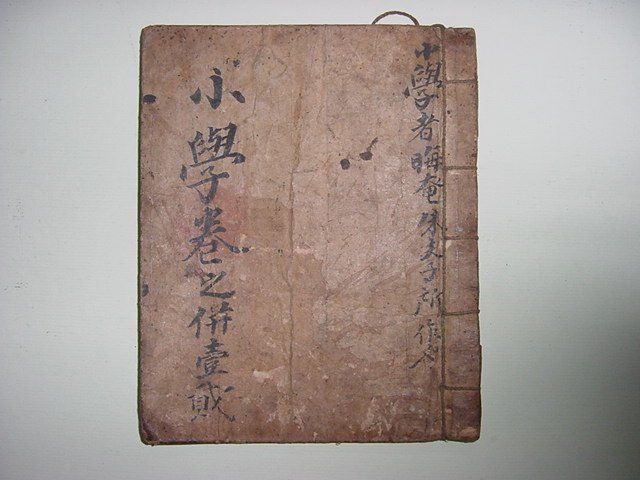 小學者晦菴朱夫子所作也
小學卷之併壹貳